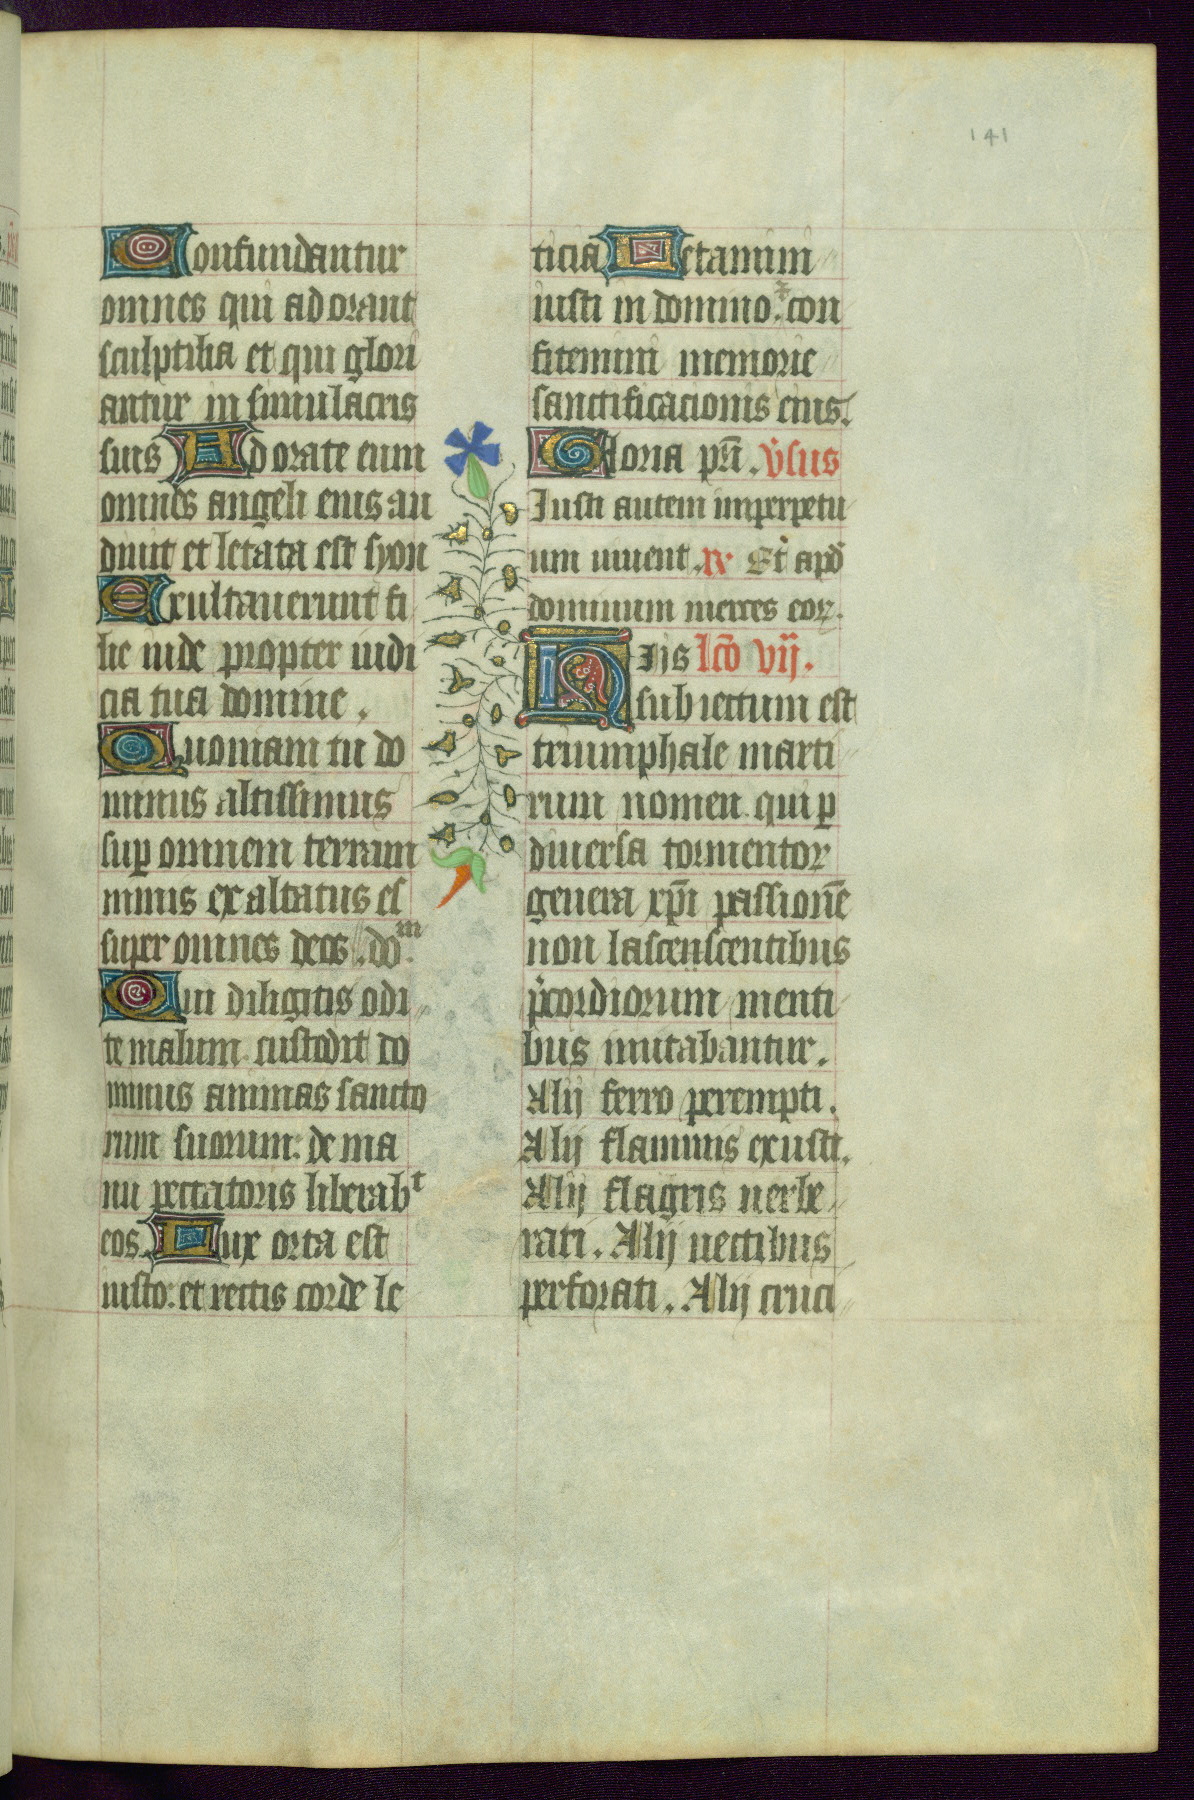 141
Confundantur
omnes qui adorant
sculptilia et qui glori
antur in simulacris
suis Adorate eum
omnes angeli eius au
diuit et letata est syon
Exultauerunt fi
lie iude propter iudi
cia tua domine.
Quoniam tu do
minus altissimus
sup omnem terram
nimis exaltatus es
super omnes deos. do m.
Qui diligitis odi
te malum custodit do
minus animas sancto
rum suorum: de ma
nu peccatoris liberab t
eos. Lux orta est
iusto: et rectis corde le
ticia Letamini
iusti in domino: con
fitemini memorie
sanctificacionis eius.
Gloria pri. v̉sus
Iusti autem imperpetu
um uiuent. R Et apd
dominum merces eoꝝ.
Hijs lco vij.
subiectum est
triumphale marti
rum nomen qui p
diuersa tormentoꝝ
genera xpi passione
non lascenscentibus
p̉cordiorum menti
bus imitabantur.
Alij ferro perempti.
Alij flammis exusti.
Alij flagris uerbe
rati. Alij uectibus
perforati. Alij cruci